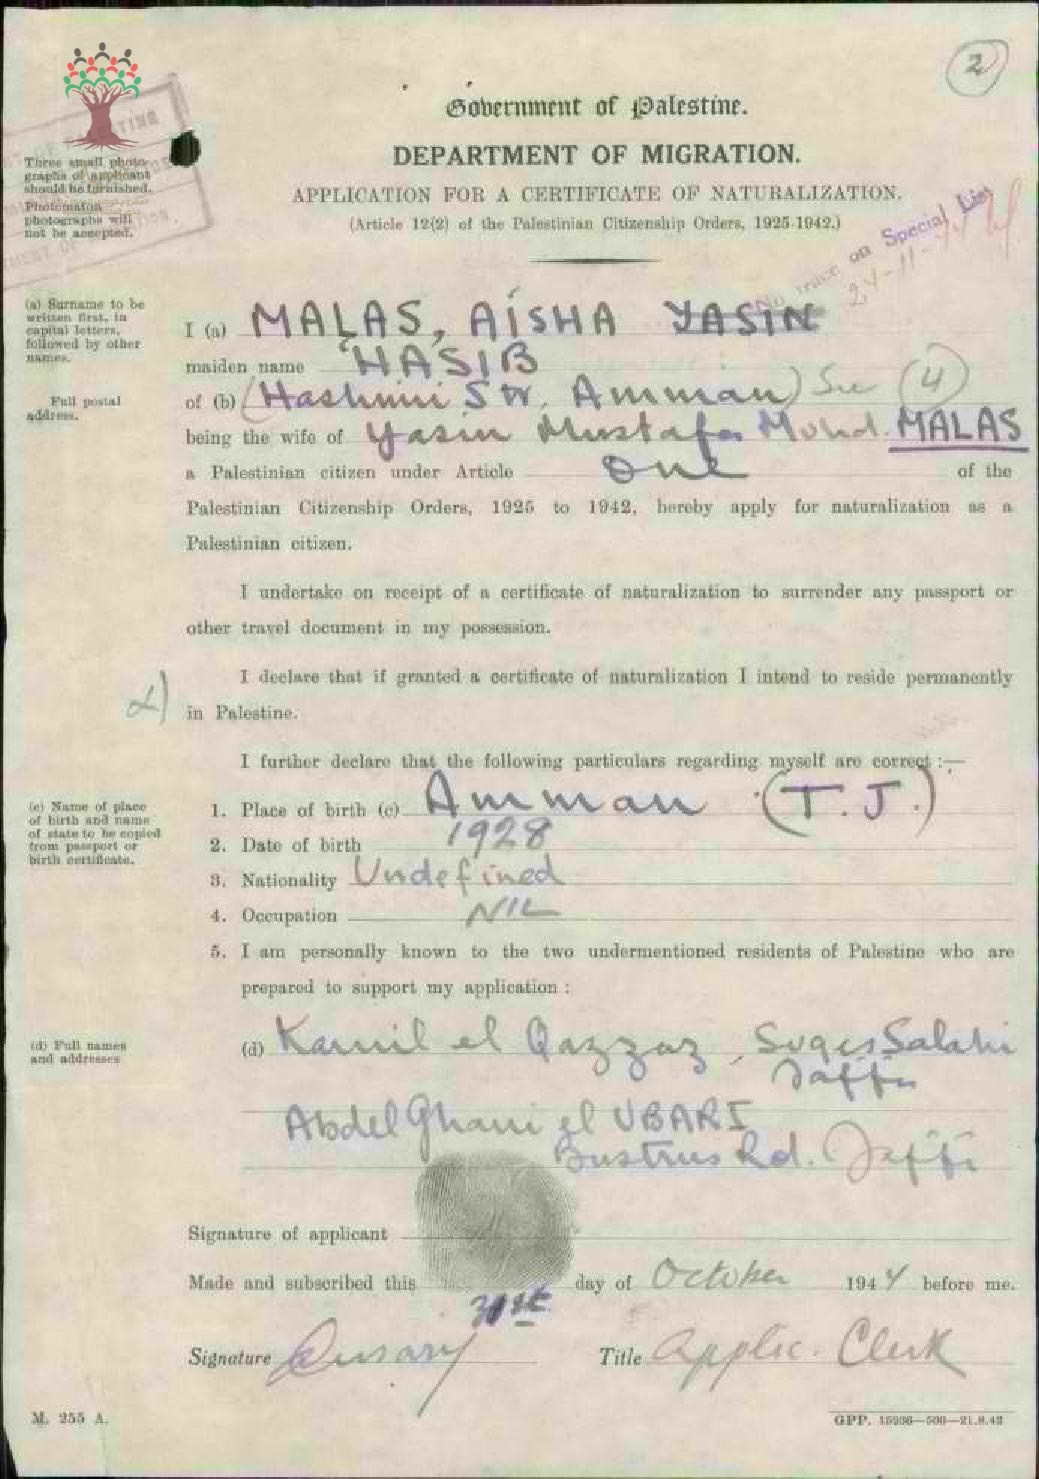 2
Government of Palestine.
DEPARTMENT OF MIGRATION.
APPLICATION FOR A CERTIFICATE OF NATURALIZATION.
(Article 12(2) of the Palestinian Citizenship Orders, 1925-1942.)
Three small photo-
graphs of applicant
should be furnished.
Photomaton
photographs will
not be accepted.
No trace on Special List
24-11-44
(a) Surname to be
written first, in
capital letters,
followed by other
names.
I (a) MALAS, AISHA YASIN
maiden name HASIB
Full postal
address.
of (b) (Hashimi Str. Amman) See (4)
being the wife of Yasin Mustafa Mohd. MALAS
a Palestinian citizen under Article One of the
Palestinian Citizenship Orders, 1925 to 1942, hereby apply for naturalization as a
Palestinian citizen.
I undertake on receipt of a certificate of naturalization to surrender any passport or
other travel document in my possession.
I declare that if granted a certificate of naturalization I intend to reside permanently
in Palestine.
I further declare that the following particulars regarding myself are correct :—
(c) Name of place
of birth and name
of state to be copied
from passport or
birth certificate.
1. Place of birth (c) Amman (T.J.)
2. Date of birth 1928
3. Nationality Undefined
4. Occupation NIL
5. I am personally known to the two undermentioned residents of Palestine who are
prepared to support my application :
(d) Full names
and addresses
(d) Kamil el Qazzaz, Suq es Salahi
Jaffa
Abdel Ghani el UBARI
Bustrus Rd. Jaffa
Signature of applicant
Made and subscribed this 31st day of October 1944 before me.
Signature Title Applic. Clerk
M. 255 A.
GPP. 15936—500—21.8.43